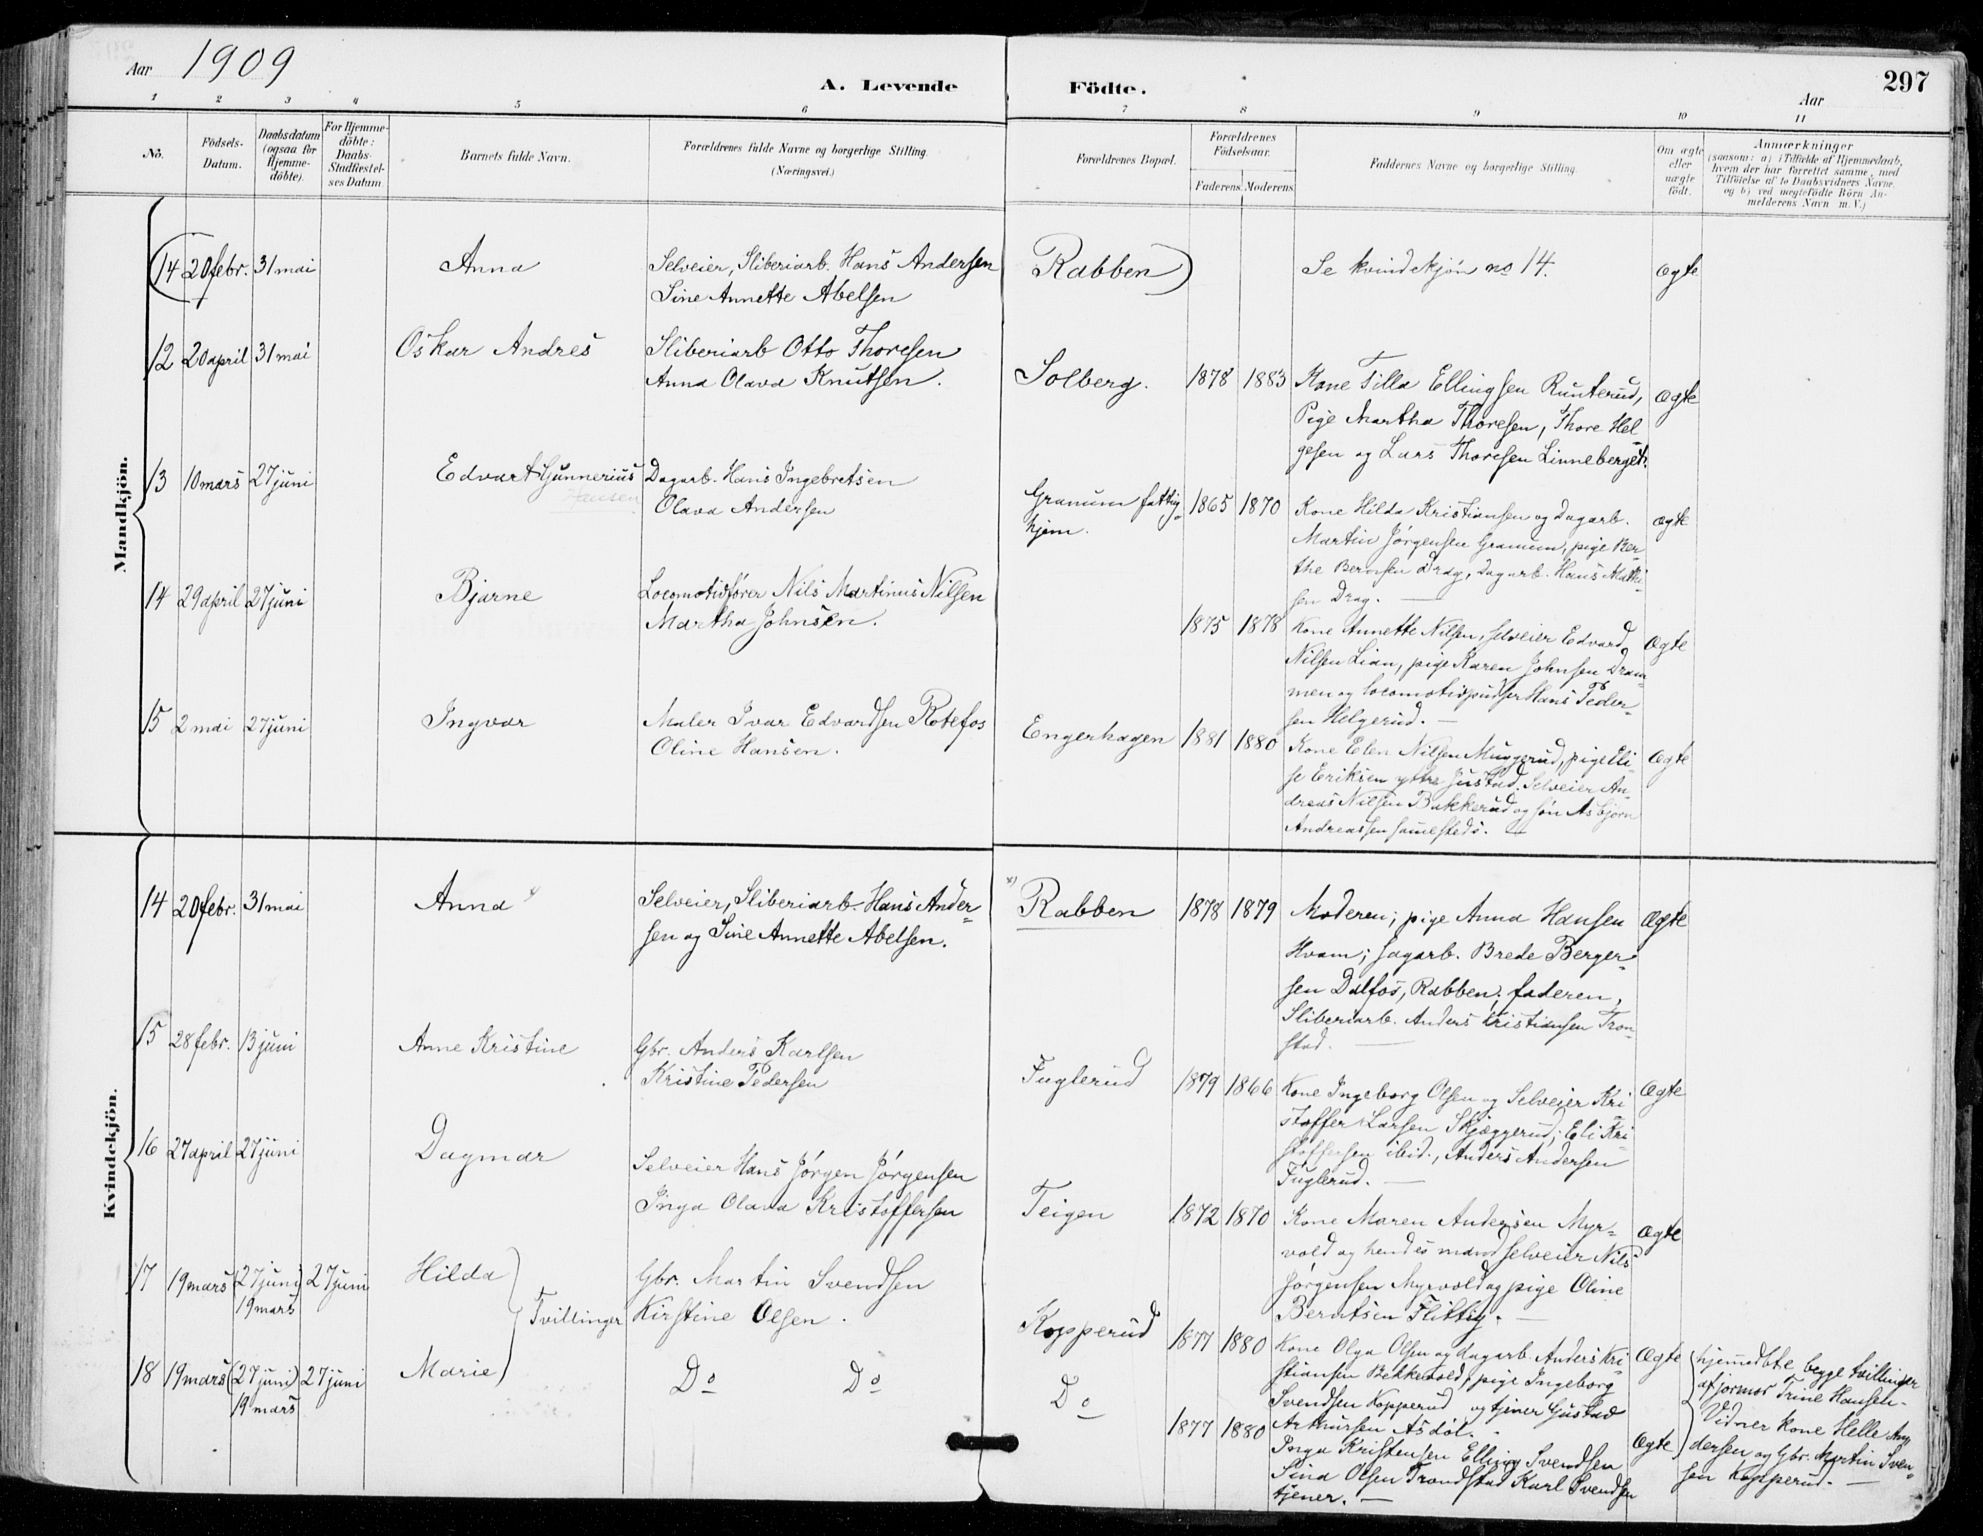 Aar 1909
A. Levende Födte.
297
Aar
1 2 3 4 5 6 7 8 9 10 11
No.
Födsels-Datum.
Daabsdatum (ogsaa for Hjemme-döbte).
For Hjemme-döbte: Daabs-Stadfæstel-ses Datum
Barnets fulde Navn.
Forældrenes fulde Navne og borgerlige Stilling. (Næringsvei.)
Forældrenes Bopæl.
Forældrenes Födselsaar.
Faderens. Moderens.
Faddernes Navne og borgerlige Stilling.
Om ægte eller uægte födt.
Anmærkninger
(saasom: a) i Tilfælde af Hjemmedaab,
hvem der har forrettet samme, med
Tilföielse af to Daabsvidners Navne.
og b) ved uægtefödte Börn An-
melderens Navn m. V.)
Mandkjön.
(14 20 febr. 31 mai Anna Selveier, Sliberiarb. Hans Andersen Rabben) Se kvindekjøn no 14. Ægte
Sine Annette Abelsen
12 20 april 31 mai Oskar Andres Sliberiarb Otto Thoresen
Anna Olava Knutsen. Solberg. 1878 1883 Kone Tilla Ellingsen Runterud, Ægte
Pige Martha Thoresen, Thore Hel
gesen og Lars Thoresen Linneberget.
13 10 mars 27 juni Edvart Gunnerius Dagarb. Hans Ingebretsen
Hansen
Olava Andersen Granum fattig- 1865 1870 Kone Hilda Kristiansen og Dagarb. Ægte
hjem. Martin Jørgensen Granum, pige Ber-
the Berntsen Drag, Dagarb. Hans Mathi-
sen Drag. —
14 29 april 27 juni Bjarne Locomotivfører Nils Martinus Nilsen
Martha Johnsen. 1875 1878 Kone Annette Nilsen, selveier Edvard Ægte
Nilsen Lian, pige Karen Johnsen Dram-
men og locomotivpudser Hans Peder-
sen Helgerud. —
15 2 mai 27 juni Ingvar Maler Ivar Edvardsen Rotefos
Oline Hansen. Engerhagen 1881 1880 Kone Elen Nilsen Muggerud, pige Eli- Ægte
se Eriksen ytre Justad. Selveier An-
dreas Nilsen Bakkerud og søn Asbjørn
Andreassen samesteds. —
Kvindekjön.
14 20 febr. 31 mai Anna x Selveier, Sliberiarb. Hans Ander- x) Rabben 1878 1879 Moderen; pige Anna Hansen Ægte
sen og Sine Annette Abelsen. Hvam; Sagarb. Brede Berger-
sen Dalfos, Rabben; faderen,
Sliberiarb. Anders Kristiansen Tron
stad. —
15 28 febr. 13 juni Anne Kristine Gbr. Anders Karlsen
Kristine Pedersen Fuglerud 1879 1866 Kone Ingeborg Olsen og Selveier Kri Ægte
stoffer Larsen Skjæggerud; Eli Kri-
stoffersen ibid., Anders Andersen
Fuglerud. —
16 27 april 27 juni Dagmar Selveier Hans Jørgen Jørgensen
Inga Olava Kristoffersen Teigen 1872 1870 Kone Maren Andersen Myr- Ægte
vold og hendes mand selveier Nils
Jørgensen Myrvold og pige Oline
Berntsen Flittig. —
17 19 mars (27 juni) 19 mars 27 juni Hilda Gbr. Martin Svendsen
Tvillinger Kirstine Olsen. Kopperud 1877 1880 Kone Olga Olsen og dagarb. Anders Kri- Ægte
stiansen Bekkevold, pige Ingeborg
Svendsen Kopperud og tjener Gustav
Arthursen Asdøl.
18 19 mars (27 juni) 19 mars 27 juni Marie Do Do Do 1877 1880 Ægte
Inga Kristensen Elling Svendsen
Sina Olsen Trondstad Karl Svendsen
tjener. —
hjemmedöbte begge tvillinger
af jormor Trine Hansen.
Vidner kone Helle An-
dersen og Gbr. Martin Sven-
sen Kopperud. —